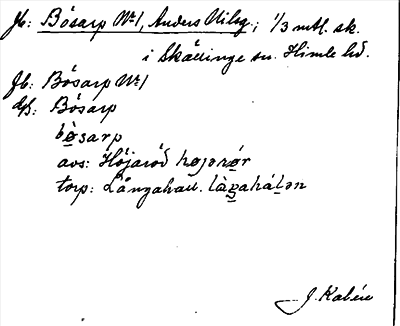 Jb: Bösarp Nr 1, Anders Nilsg; 1/3 mtl. sk.
i Skällinge sn. Himle hd.
Jb: Bösarp Nr 1
dpf: Bösarp
bø̀sarp
avs: Höjaröd højarø̀r
torp: Långahall. låŋahálən
J. Kalén